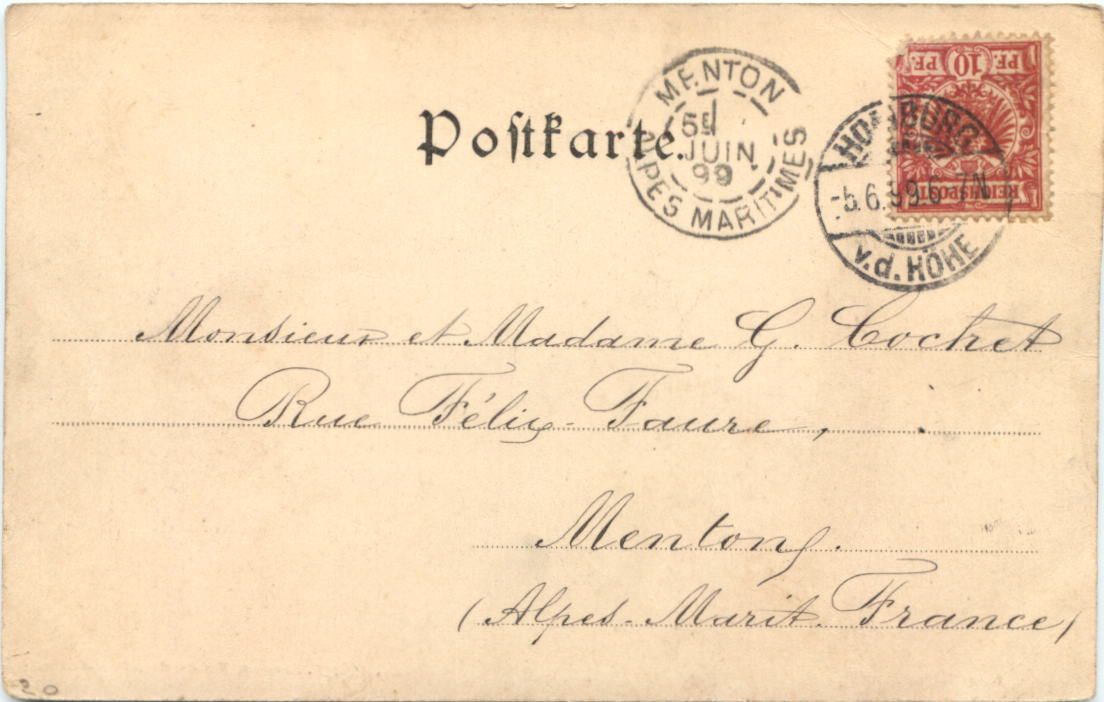 Poſtkarte.
MENTON
5E
JUIN
99
ALPES MARITIMES
PF. 10 PF.
REICHSPOST
HOMBURG
-5.6.99 6-7N.
v.d. HÖHE
Monsieur et Madame G. Cochet
Rue Félix-Faure,
Menton.
(Alpes-Marit. France)
20